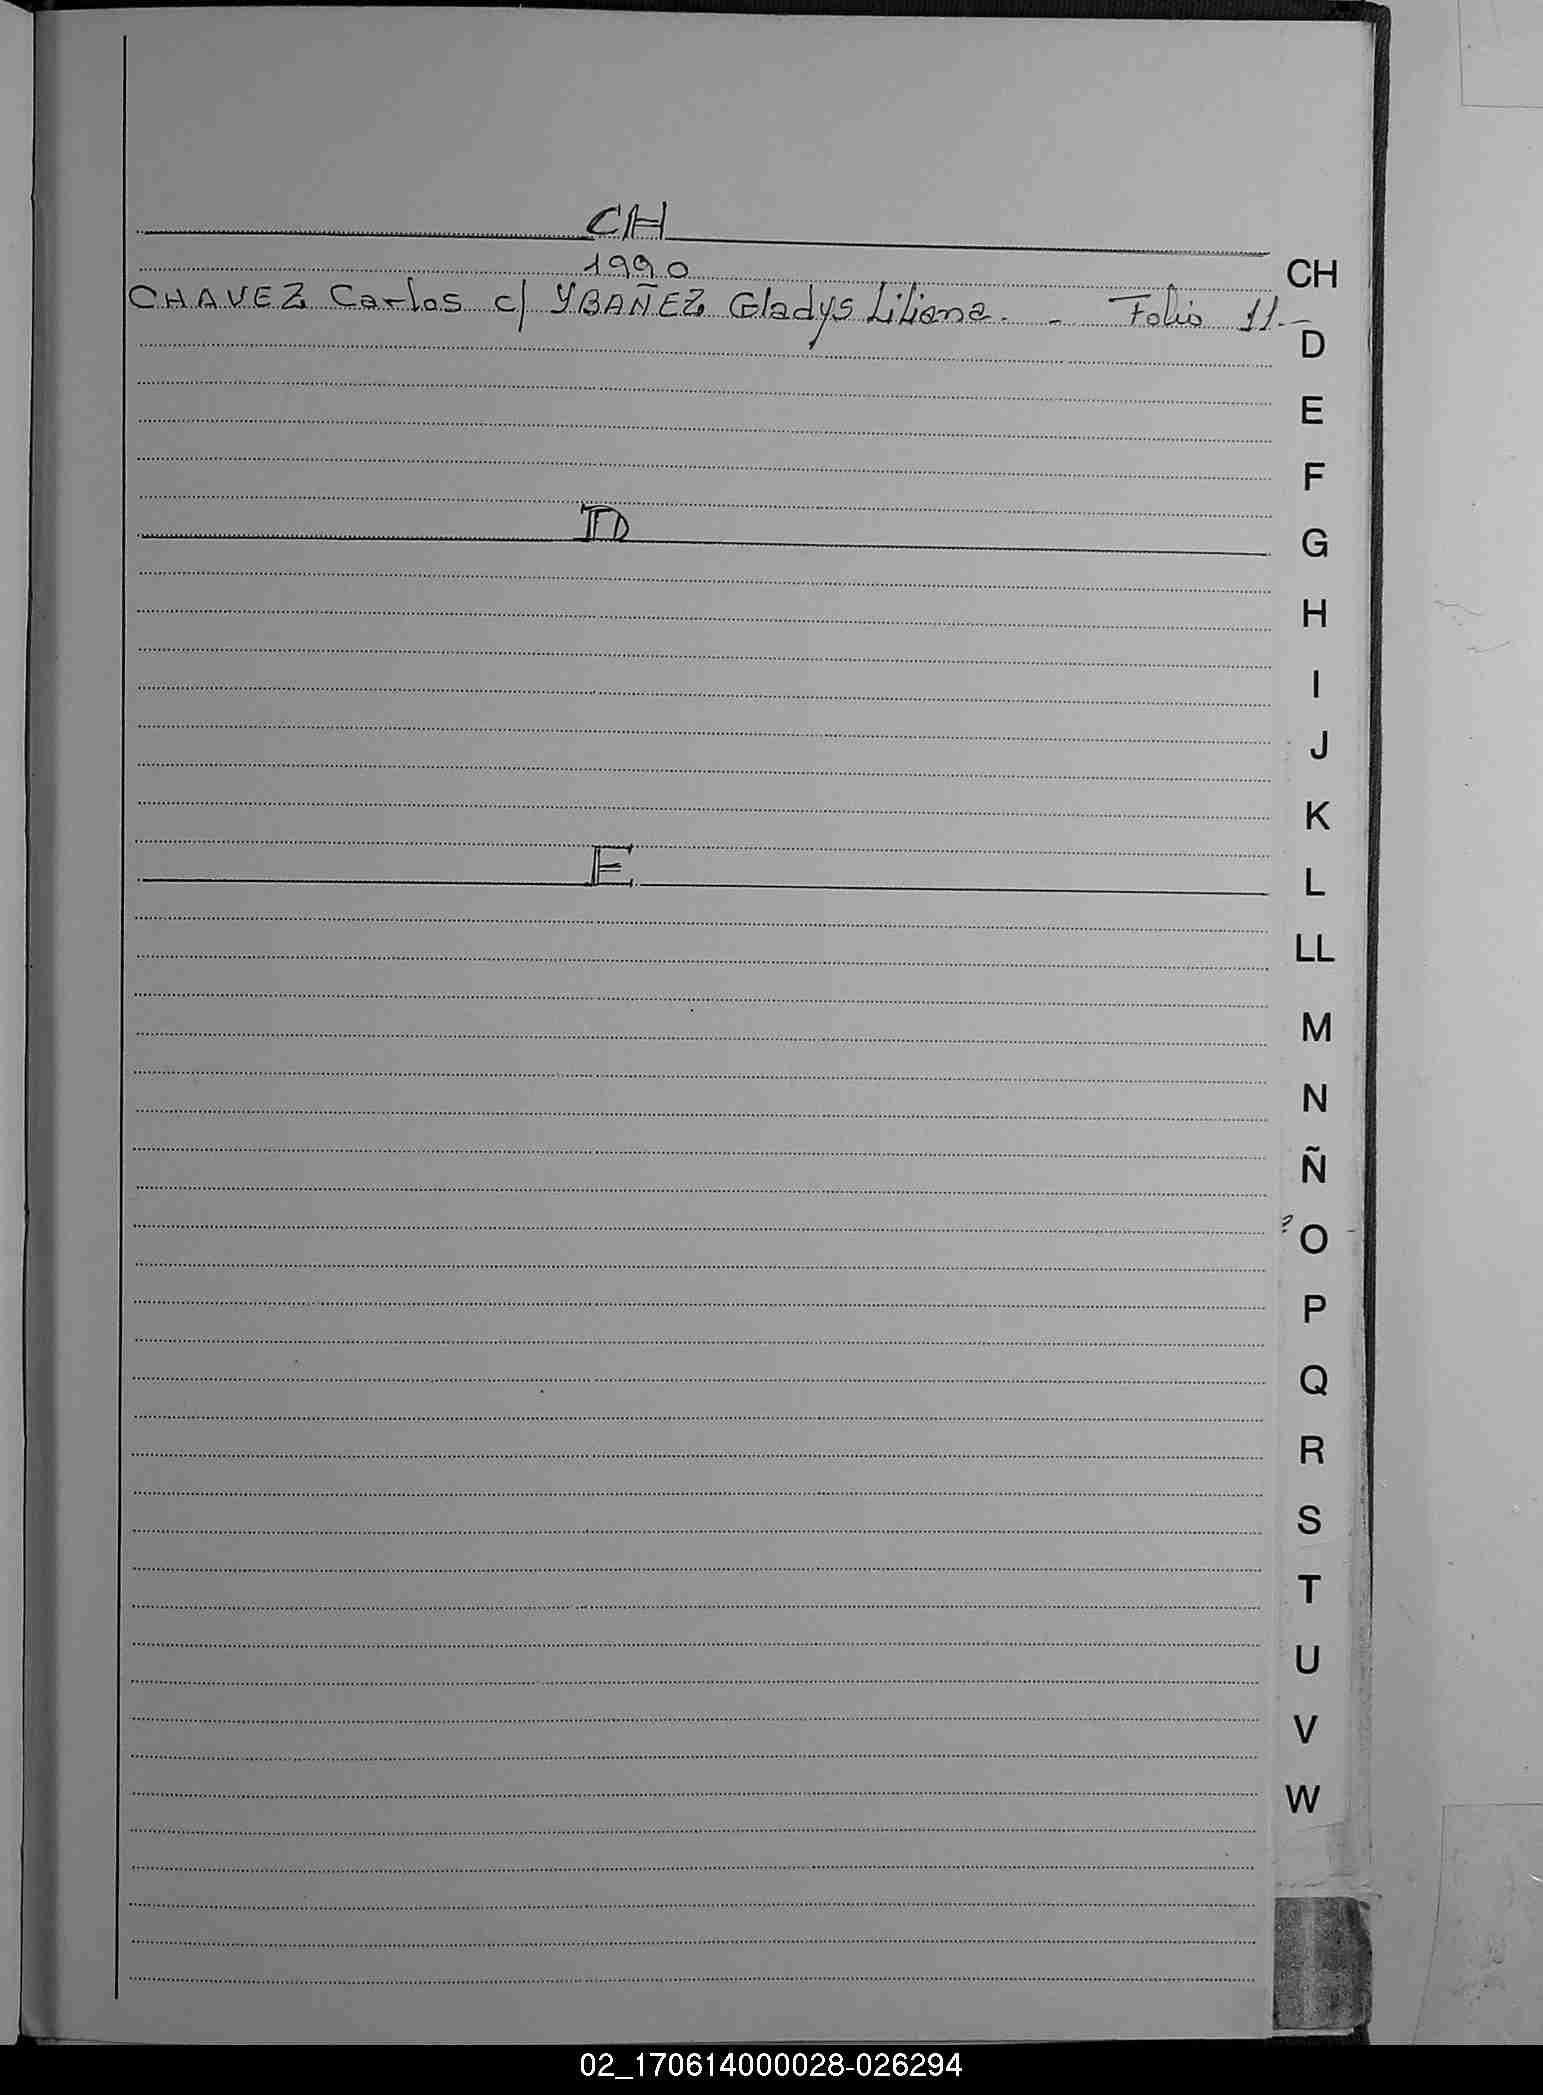 CH
1990
CHAVEZ Carlos c/ YBAÑEZ Gladys Liliana. - Folio 11.-
D
E
CH
D
E
F
G
H
I
J
K
L
LL
M
N
Ñ
O
P
Q
R
S
T
U
V
W
02_170614000028-026294